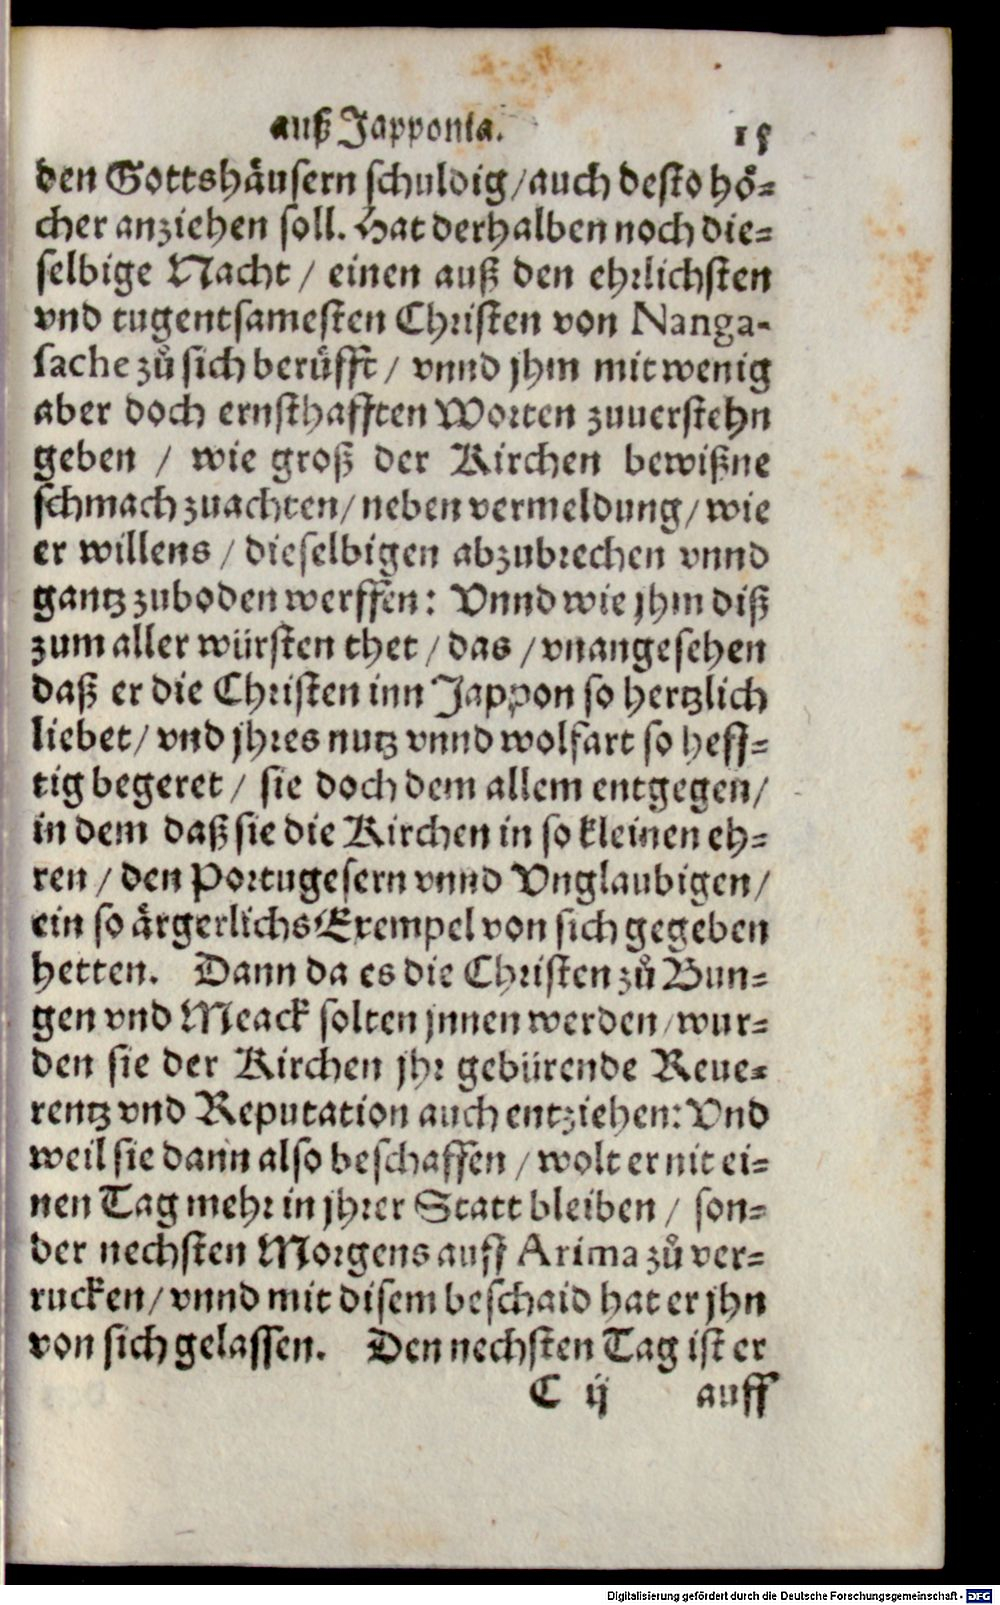 auß Japponia. 15
den Gottshäusern schuldig/auch desto hö-
cher anziehen soll. Hat derhalben noch die-
selbige Nacht / einen auß den ehrlichsten
vnd tugentsamesten Christen von Nanga-
sache zů sich berüfft / vnnd jhm mit wenig
aber doch ernsthafften Worten zuuerstehn
geben / wie groß der Kirchen bewißne
schmach zuachten/ neben vermeldung/ wie
er willens / dieselbigen abzubrechen vnnd
gantz zuboden werffen: Vnnd wie jhm diß
zum aller würsten thet / das / vnangesehen
daß er die Christen inn Jappon so hertzlich
liebet/ vnd jhres nutz vnnd wolfart so heff-
tig begeret / sie doch dem allem entgegen/
in dem daß sie die Kirchen in so kleinen eh-
ren / den Portugesern vnnd Vnglaubigen/
ein so ärgerlichs Exempel von sich gegeben
hetten. Dann da es die Christen zů Bun-
gen vnd Meack solten jnnen werden/wur-
den sie der Kirchen jhr gebürende Reue-
rentz vnd Reputation auch entziehen: Vnd
weil sie dann also beschaffen / wolt er nit ei-
nen Tag mehr in jhrer Statt bleiben / son-
der nechsten Morgens auff Arima zů ver-
rucken/ vnnd mit disem beschaid hat er jhn
von sich gelassen. Den nechsten Tag ist er
C ij auff
Digitalisierung gefördert durch die Deutsche Forschungsgemeinschaft - DFG